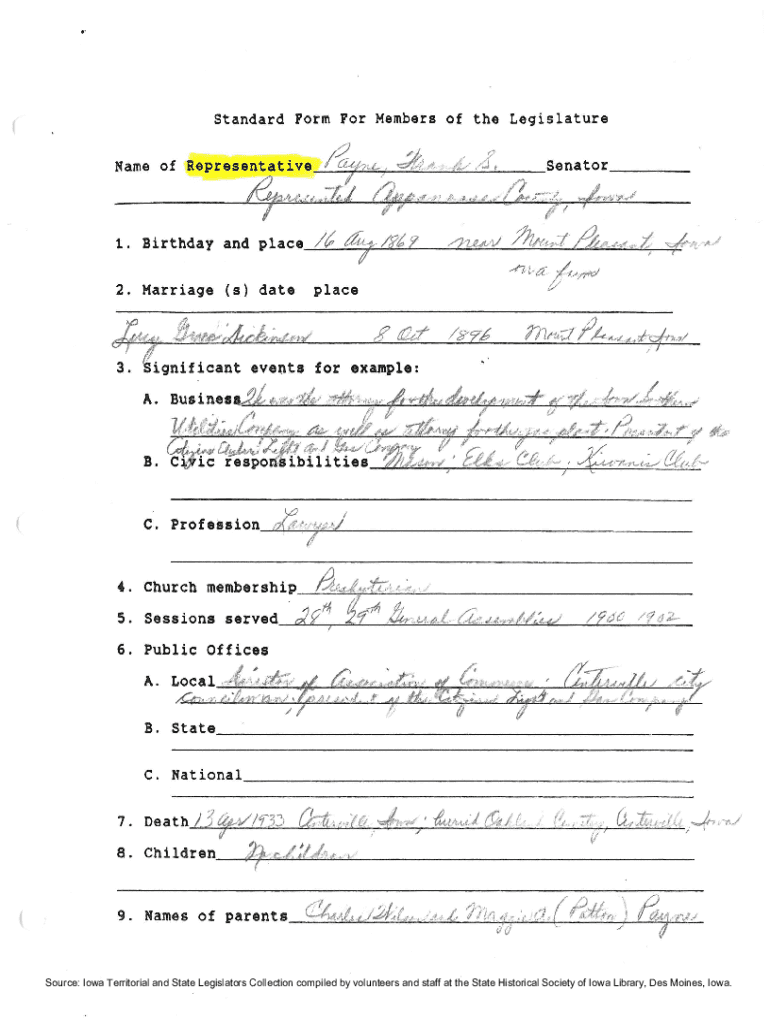 Standard Form For Members of the Legislature
Name of Representative Payne, Frank S. Senator
Represented Appanoose County, Iowa
1. Birthday and place 16 Aug 1869 near Mount Pleasant, Iowa
on a farm
2. Marriage (s) date place
Lucy Dickinson 8 Oct 1896 Mount Pleasant, Iowa
3. Significant events for example:
A. Business He was the attorney for the development of the Iowa Southern
Utilities Company as well as attorney for the gas plant. President of the
Citizens Light and Gas Company
B. Civic responsibilities Mason; Elks Club; Kiwanis Club
C. Profession Lawyer
4. Church membership Presbyterian
5. Sessions served 28th, 29th General Assemblies 1900 1902
6. Public Offices
A. Local Director of Association of Commerce; Centerville city
councilman; president of the Citizens Light and Gas Company
B. State
C. National
7. Death 13 Apr 1933 Centerville, Iowa; buried Oakland Cemetery, Centerville, Iowa
8. Children No children
9. Names of parents Charles and (Patton) Payne
Source: Iowa Territorial and State Legislators Collection compiled by volunteers and staff at the State Historical Society of Iowa Library, Des Moines, Iowa.